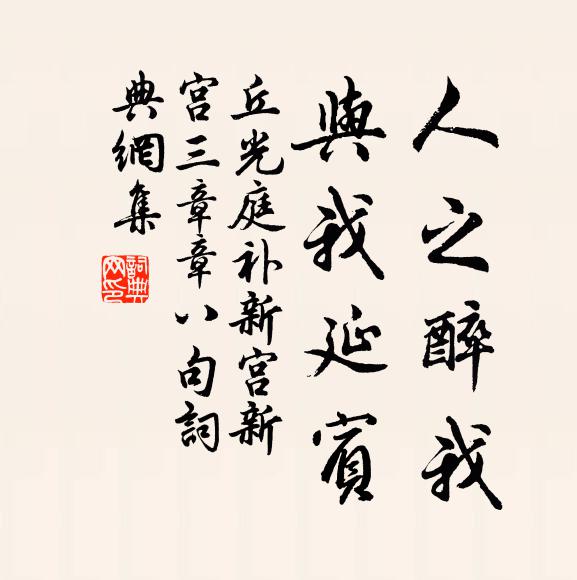 人之醉我
與我延賓
丘光庭补新宮新
宮三章章八句詞
典網集
詞典
网印